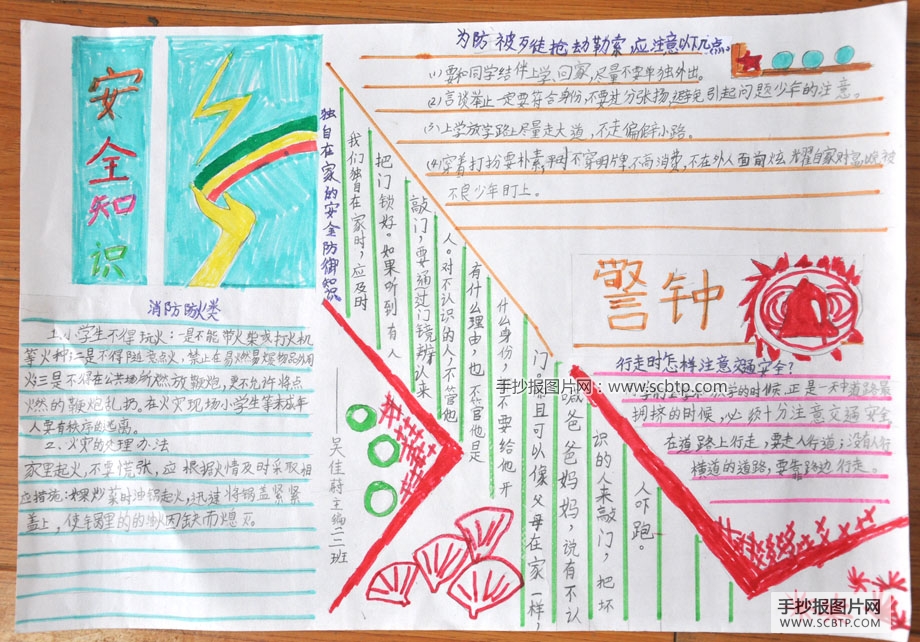 安全知识
消防防火类
一.小学生不得玩火:一是不能带火柴或打火机
等火种;二是不得随意点火,禁止在易燃易爆物品处用
火;三是不得在公共场所燃放鞭炮,更不允许将点
燃的鞭炮乱扔。在火灾现场小学生等未成年
人要有秩序的逃离。
2、火灾的处理办法
家里起火,不要慌张,应根据火情及时采取相
应措施:如果炒菜时油锅起火,迅速将锅盖紧紧
盖上,使锅里的的油火因缺 而熄灭。
独自在家的安全防御知识
我们独自在家时,应及时
把门锁好。如果听到有人
敲门,要通过门镜辨认来
人。对不认识的人,不管他
有什么理由,也不管他是
什么身份,都不要给他开
门。而且可以像父母在家一样,
喊爸爸妈妈,说有不认
识的人来敲门,把坏
人吓跑。
——吴佳蒋主编二三班
为防被歹徒抢劫勒索,应注意以下几点。
(1)要和同学结伴上学、回家,尽量不要单独外出。
(2)言谈举止一定要符合身份,不要过分张扬,避免引起问题少年的注意。
(3)上学放学路上尽量走大道,不走偏僻小路。
(4)穿着打扮要朴素,平时不穿名牌,不高消费,不在外人面前炫耀自家财富,以免被
不良少年盯上。
警钟
行走时怎样注意交通安全?
学的时候,正是一天中道路最
拥挤的时候,必须十分注意交通安全
在道路上行走,要走人行道;没有人行
横道的道路,要靠路边行走。
手抄报图片网:www.scbtp.com
手抄报图片网
WWW.SCBTP.COM